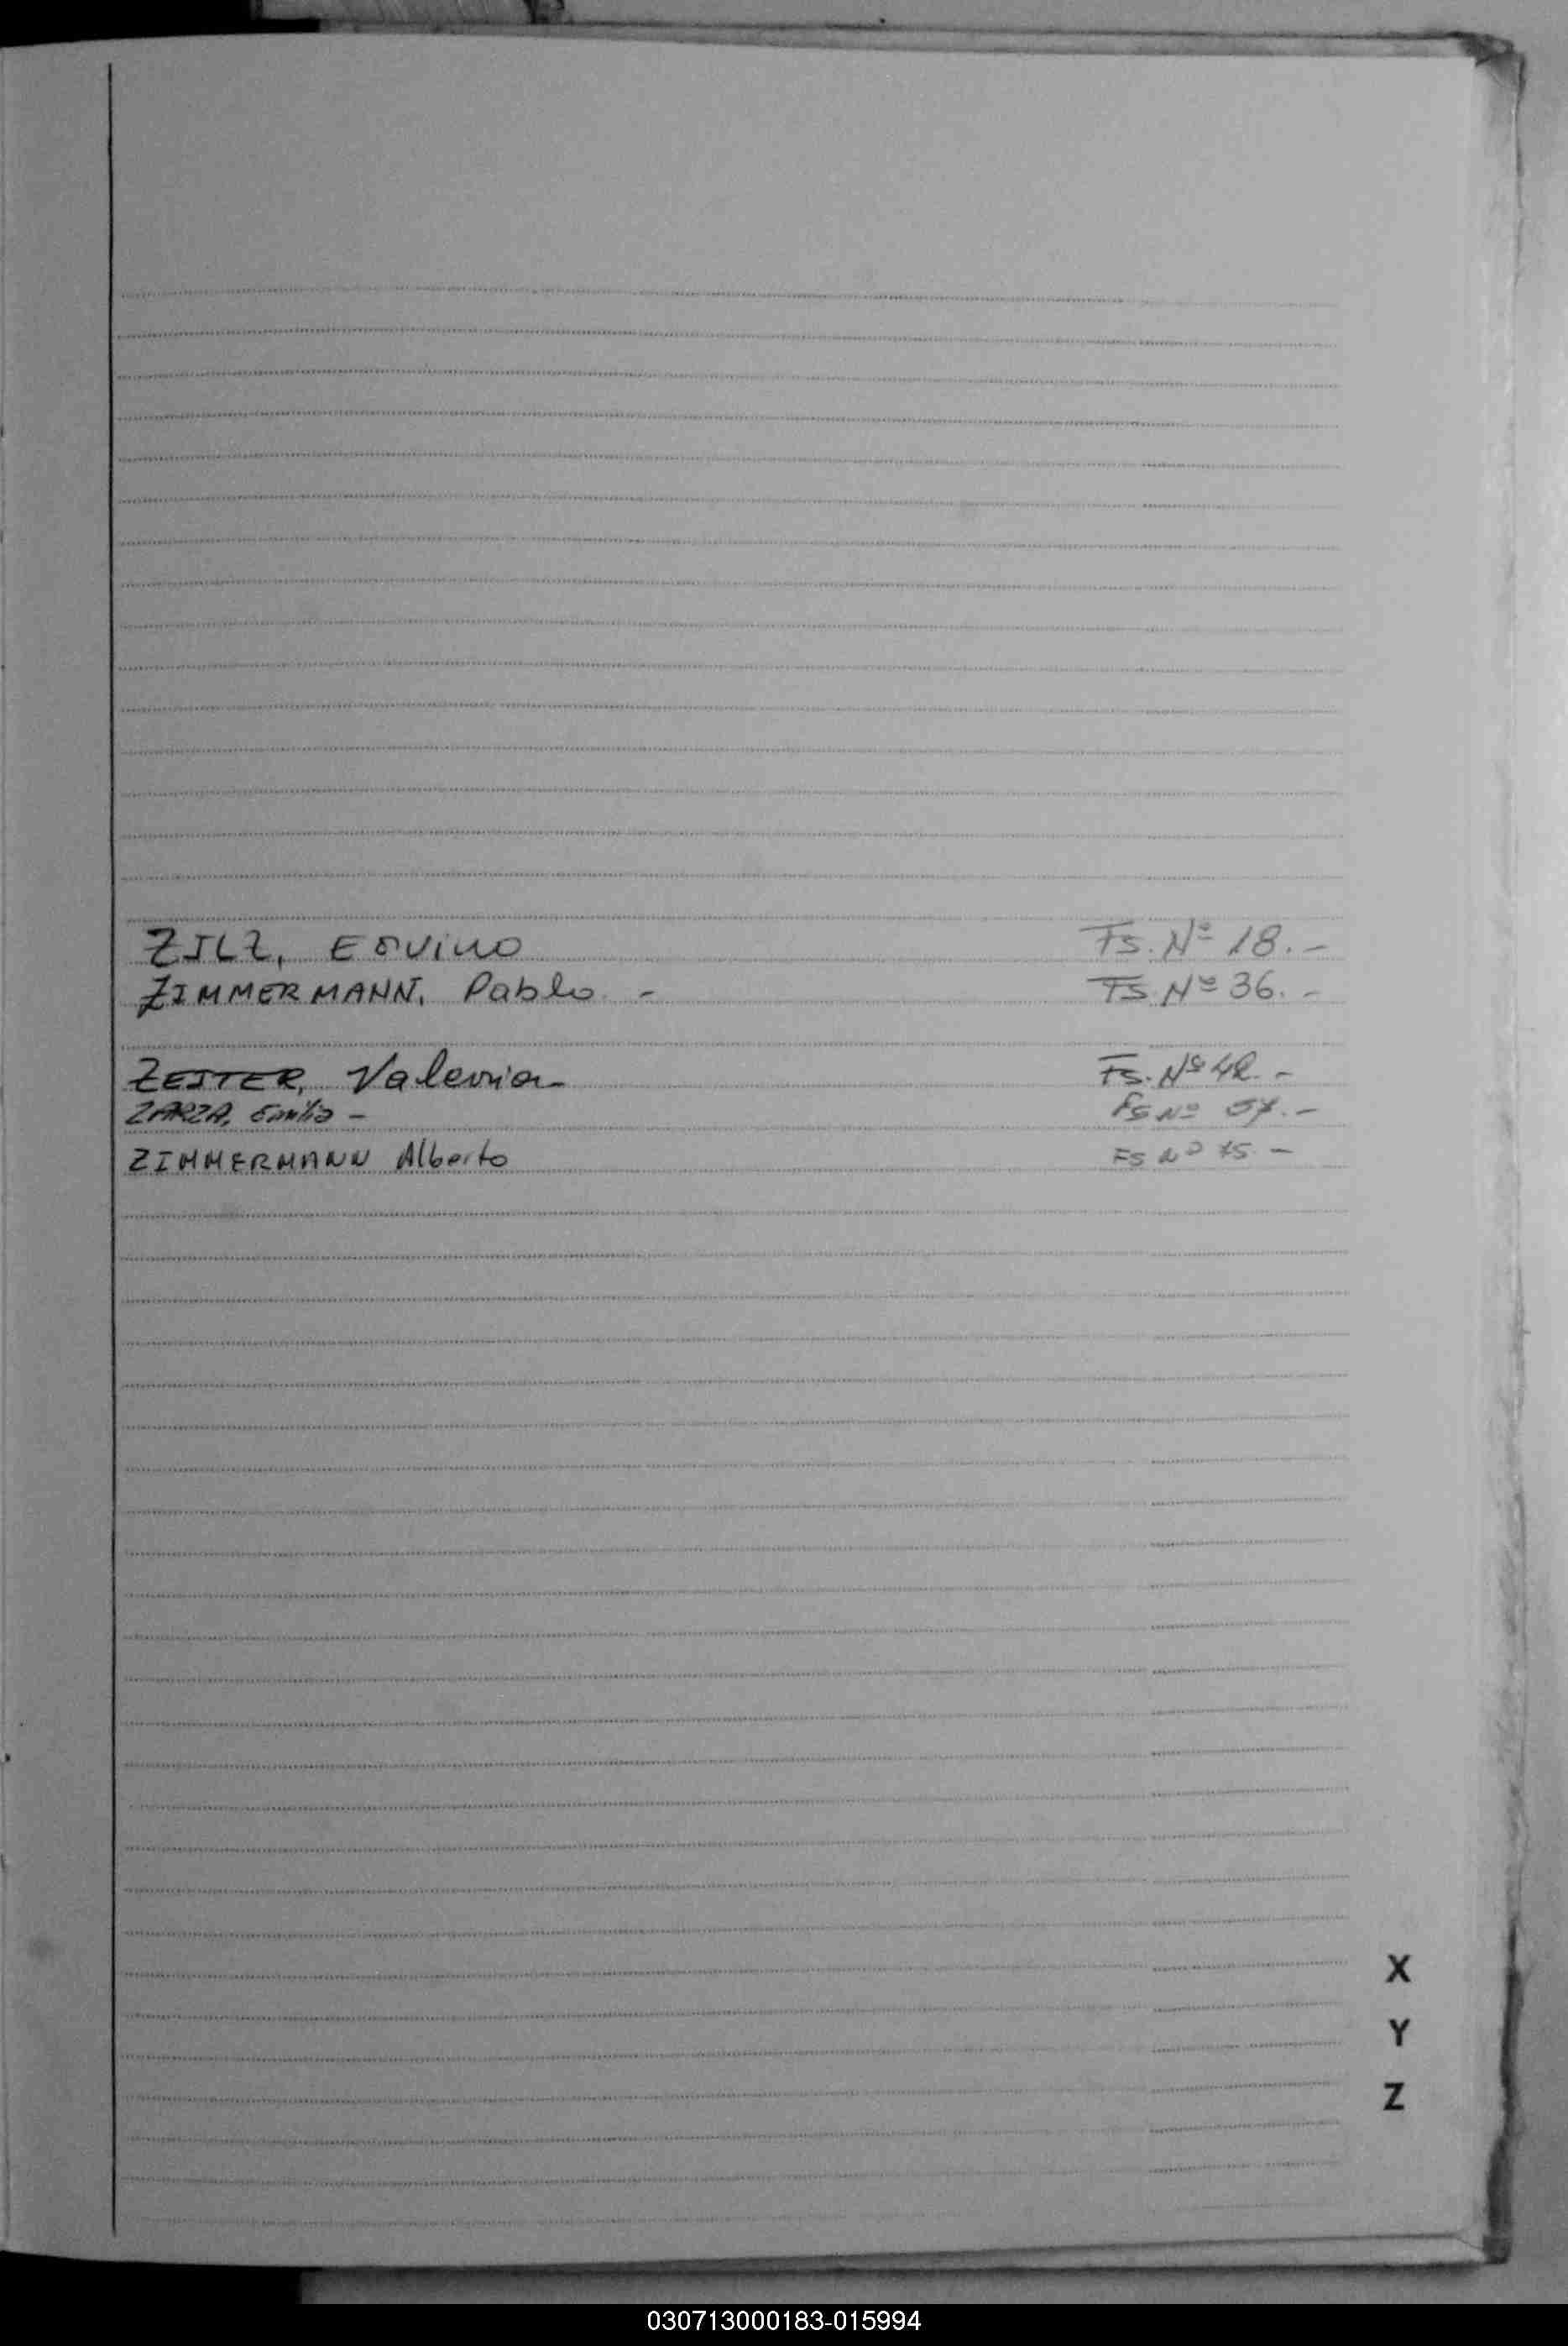 ZILZ, Ervino Fs. Nº 18.-
ZIMMERMANN, Pablo - Fs. Nº 36.-
ZEITER, Valeria Fs. Nº 42.-
ZARZA, Emilia - Fs Nº 57.-
ZIMMERMANN Alberto Fs Nº 75 -
X
Y
Z
030713000183-015994